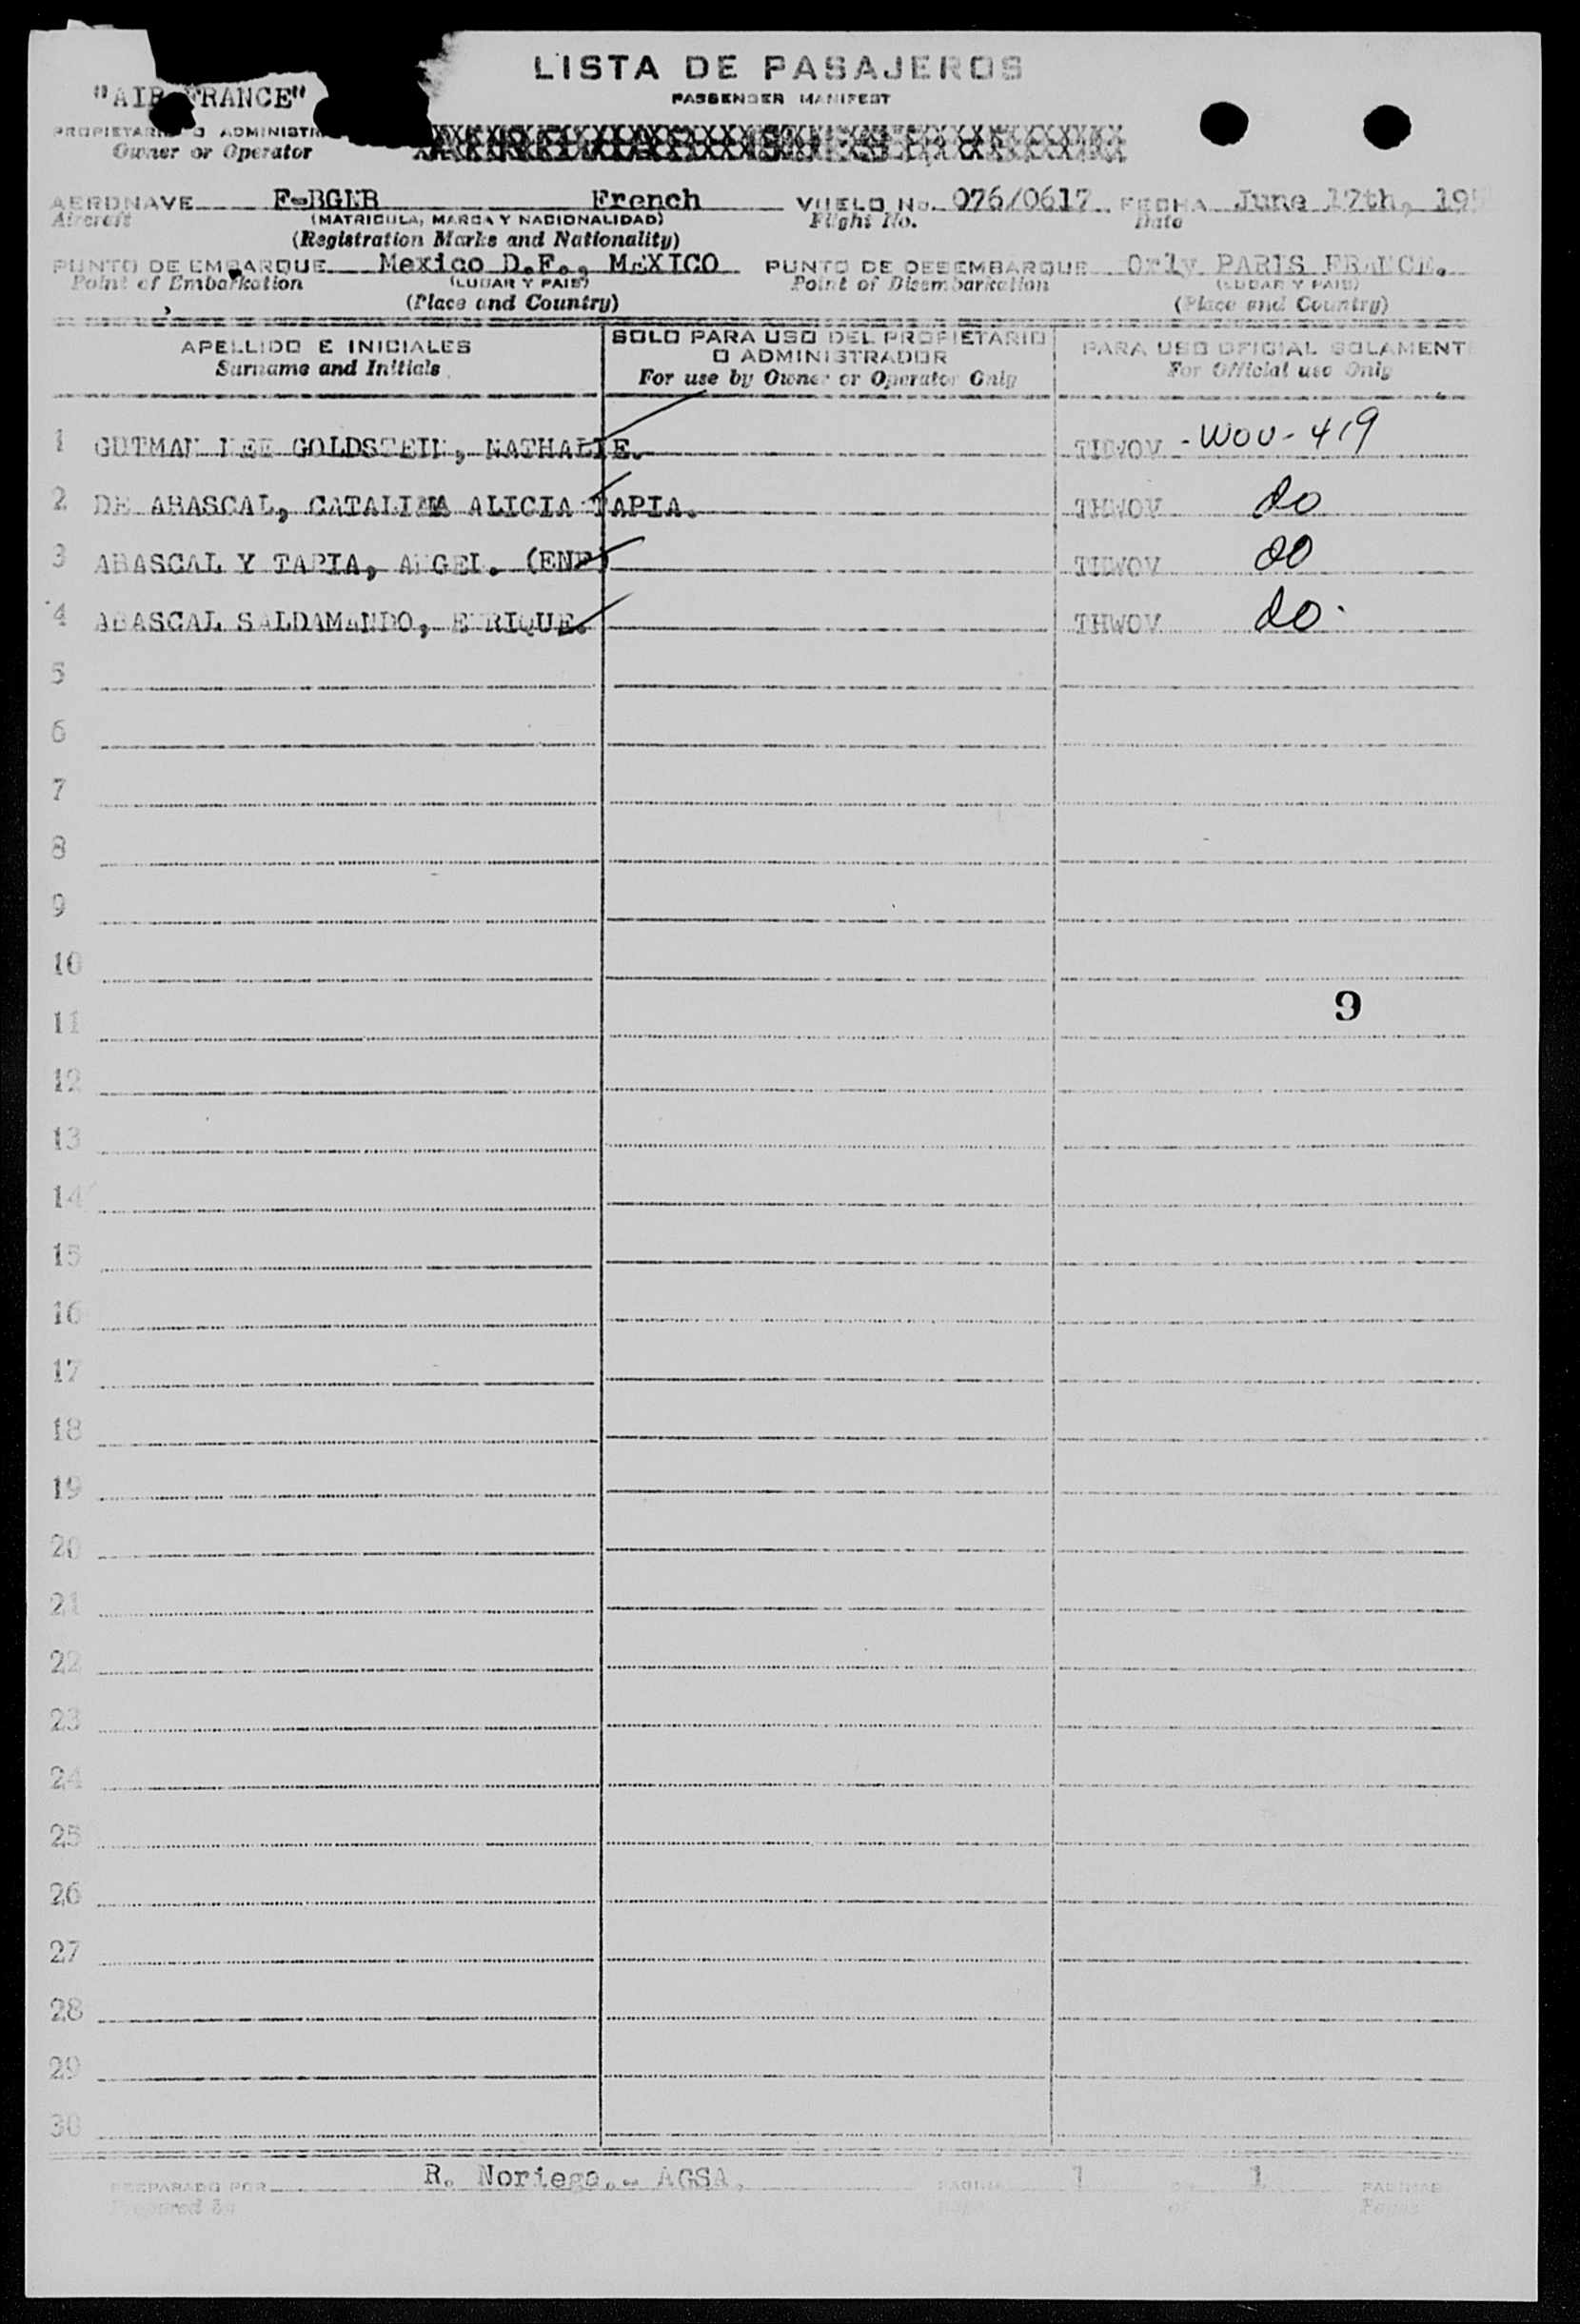 LISTA DE PASAJEROS
PASSENGER MANIFEST
"AIR FRANCE"
PROPIETARIO O ADMINISTR
Owner or Operator
AERONAVE F-BGNB French VUELO No. 076/0617 FECHA June 17th, 195
Aircraft (MATRICULA, MARCA Y NACIONALIDAD) Flight No. Date
(Registration Marks and Nationality)
PUNTO DE EMBARQUE Mexico D.F., MEXICO PUNTO DE DESEMBARQUE Orly PARIS FRANCE.
Point of Embarkation (LUGAR Y PAIS) Point of Disembarkation (LUGAR Y PAIS)
(Place and Country) (Place and Country)
APELLIDO E INICIALES SOLO PARA USO DEL PROPIETARIO O ADMINISTRADOR PARA USO OFICIAL SOLAMENT
Surname and Initials For use by Owner or Operator Only For Official use Only
1 GUTMAN NEE GOLDSTEIN, NATHALIE. THWOV - WOV - 419
2 DE ABASCAL, CATALINA ALICIA TAPIA. THWOV do
3 ABASCAL Y TAPIA, ANGEL. (ENF) THWOV do
4 ABASCAL SALDAMANDO, ENRIQUE. THWOV do.
5
6
7
8
9
10
9
11
12
13
14
15
16
17
18
19
20
21
22
23
24
25
26
27
28
29
30
PREPARADO POR R. Noriega.- AGSA. PAGINA 1 DE 1 PAGINAS
Prepared by Page of Pages